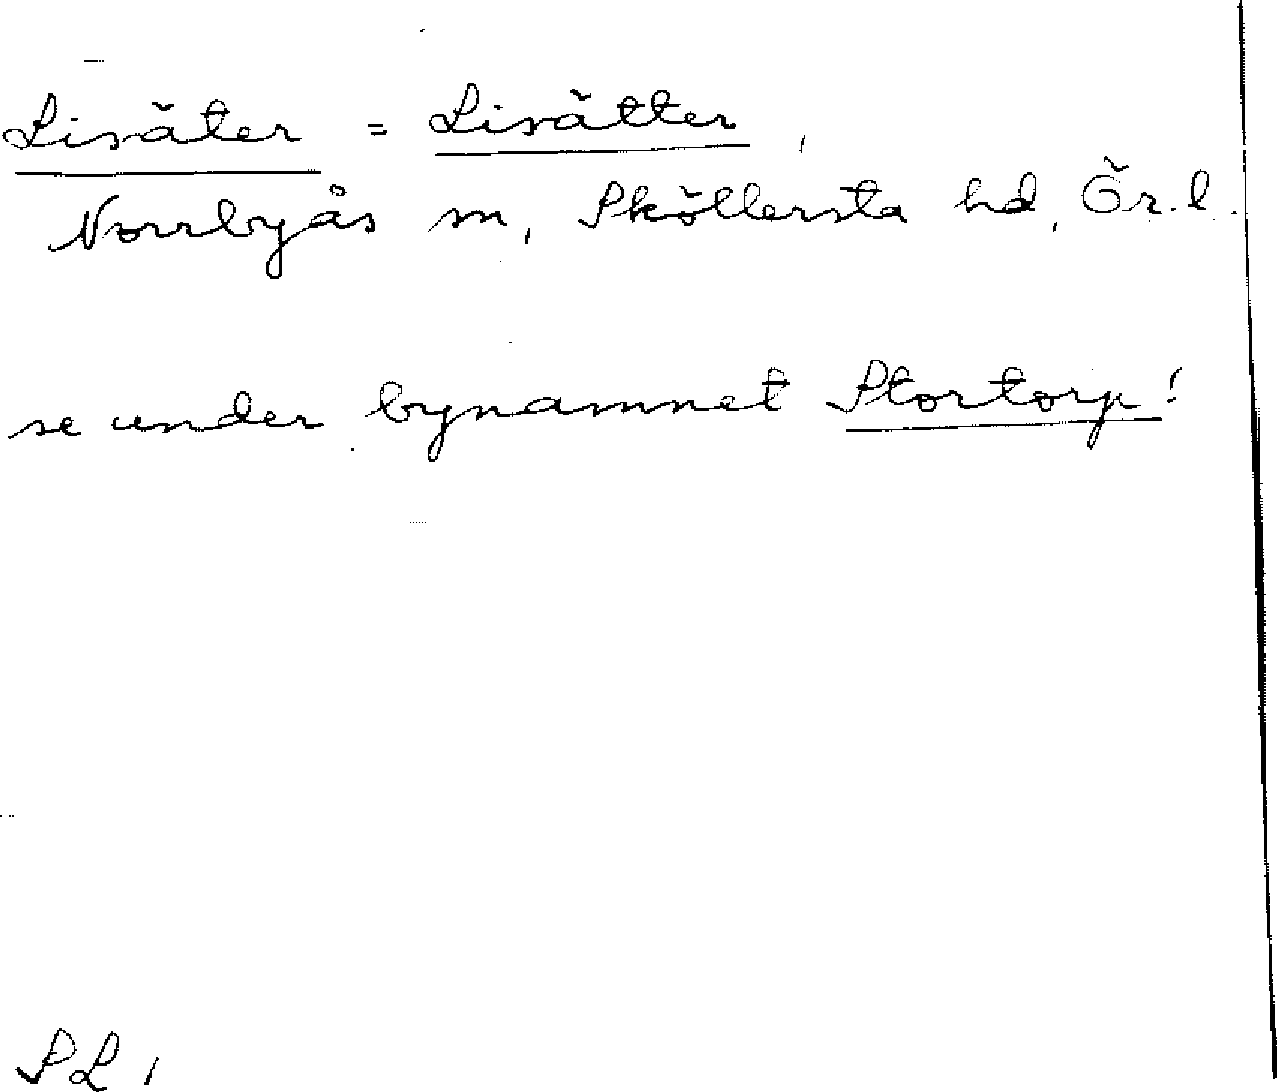 Lisäter = Lisätter,
Norrbyås sn, Sköllersta hd, Ör. l.
se under bynamnet Stortorp!
SL,